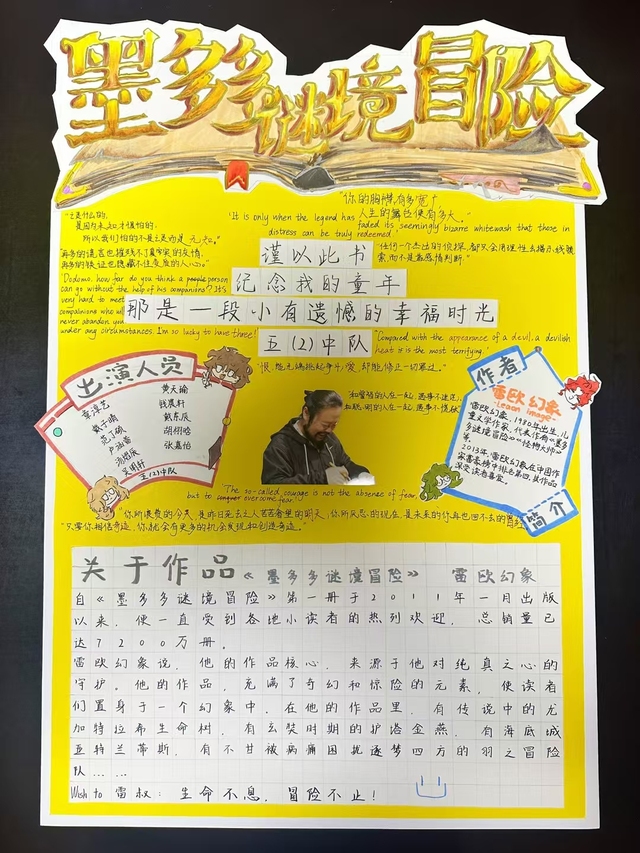 墨多多谜境冒险
"你的胸襟有多宽,
人生的舞台便有多大。"
是因为未知才恐怕的;
所以我们怕的不是
"It is only when the legend has faded its seemingly bizarre whitewash that those in distress can be truly redeemed."
谨以此书
纪念我的童年
那是一段小有遗憾的幸福时光
五(2)中队
"Dodomo, how far do you think a people person
can go without the help of his companions? It's
very hard to meet
companions who will
never abandon you
under any circumstances. I'm so lucky to have three!
"Compared with the appearance of a devil, a devilish
heart is the most terrifying."
"恨,能无端挑起争斗,爱,却能修正一切罪过。"
出演人员
黄天谕
钱晨轩
戴东辰
胡栩晗
张嘉怡
五(2)中队
作者
雷欧幻象
Leaon image
雷欧幻象,1980年出生,儿
童文学作家,代表作有《墨多
多谜境冒险》《怪物大师》
等。
2013年,雷欧幻象在中国作
家富豪榜中排名第四,其作品
深受读者喜爱。
简介
The so-called courage is not the absence of fear,
but to conquer overcome fear.
"你所浪费的今天,是昨日死去之人苦苦奢望的明天,你所厌恶的现在,是未来的你再也回不去的曾经
"只要你相信奇迹,你就会有更多的机会发现和创造奇迹。"
关于作品《墨多多谜境冒险》 雷欧幻象
自《墨多多谜境冒险》第一册于2011年一月出版
以来,便一直受到各地小读者的热烈欢迎,总销量已
达7200万册。
雷欧幻象说,他的作品核心,来源于他对纯真之心的
守护。他的作品,充满了奇幻和惊险的元素,使读者
们置身于一个幻象中,在他的作品里,有传说中的尤
加特拉希生命树,有玄奘时期的护塔金燕,有海底城
亚特兰蒂斯,有不甘被病痛困扰逐梦四方的羽之冒险
队……
Wish to 雷叔:生命不息,冒险不止!